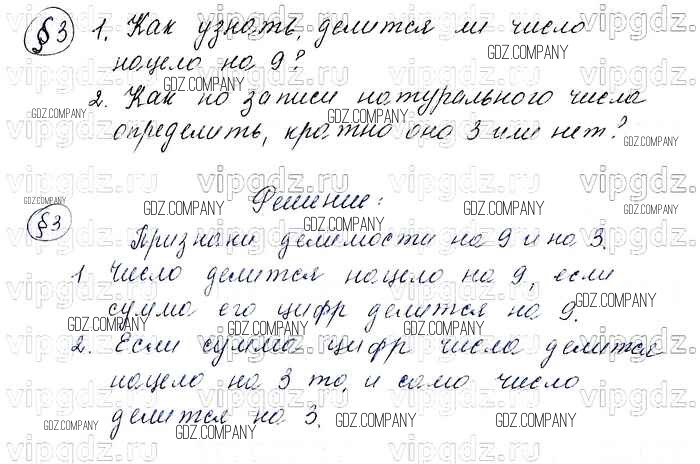 §3 1. Как узнать, делится ли число
нацело на 9?
2. Как по записи натурального числа
определить, кратно оно 3 или нет?
Решение:
§3
Признаки делимости на 9 и на 3.
1 Число делится нацело на 9, если
сумма его цифр делится на 9.
2. Если сумма цифр числа делится
нацело на 3 то, и само число
делится на 3.